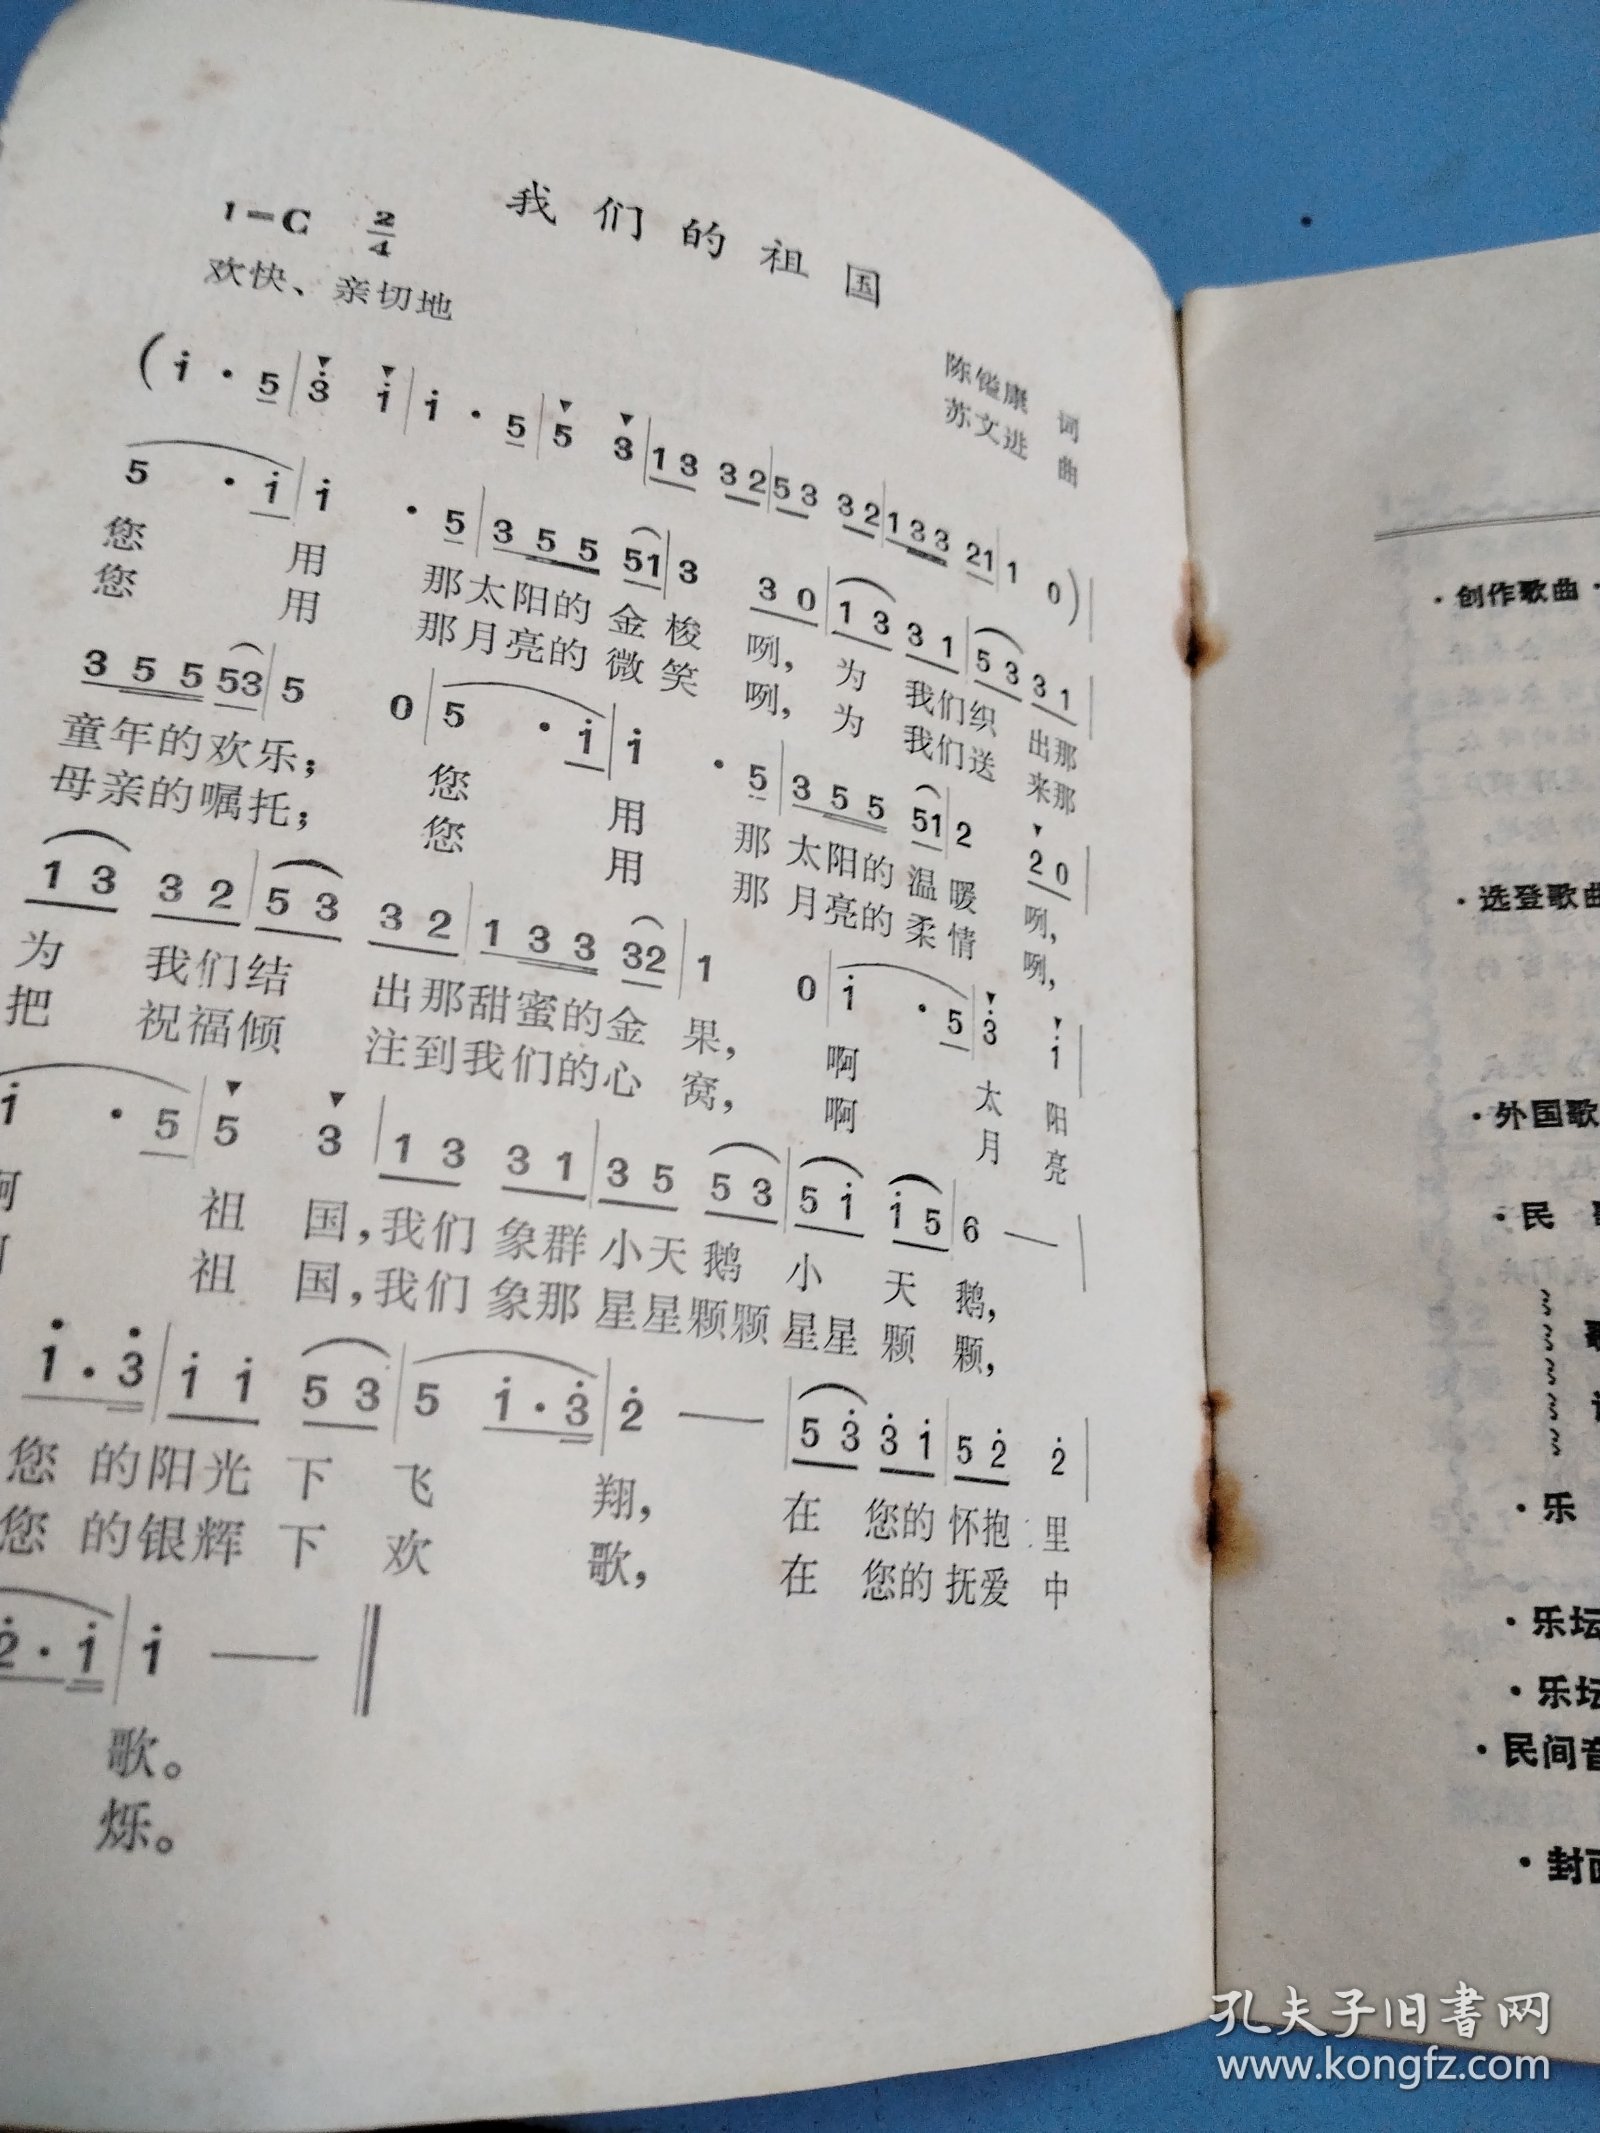 我们的祖国
1=C 2/4
欢快、亲切地
陈镒康 词
苏文进 曲
(i · 5 | 3 i | i · 5 | 5 3 | 13 32 | 53 32 | 133 21 | 1 0) |
5 · i | i · 5 | 3 55 51 | 3 3 0 | 1 3 3 1 | 5 3 3 1 |
您 用 那太阳的金梭 咧, 为 我们织 出那
您 用 那月亮的微笑 咧, 为 我们送 来那
3 5 5 53 | 5 0 | 5 · i | i · 5 | 3 5 5 51 | 2 2 0 |
童年的欢乐; 您 用 那太阳的温暖 咧,
母亲的嘱托; 您 用 那月亮的柔情 咧,
1 3 3 2 | 5 3 3 2 | 1 3 3 32 | 1 0 | i · 5 | 3 i |
为 我们结 出那甜蜜的金 果, 啊 太 阳
把 祝福倾 注到我们的心 窝, 啊 月 亮
i · 5 | 5 3 | 1 3 3 1 | 3 5 5 3 | 5 i i 5 | 6 — |
祖 国,我们象群小天鹅 小 天 鹅,
祖 国,我们象那星星颗颗星星颗 颗,
i · 3 | i i 5 3 | 5 i · 3 | 2 — | 5 3 3 i | 5 2 2 |
您的阳光下 飞 翔, 在 您的怀抱里
您的银辉下 欢 歌, 在 您的抚爱中
2 · i | i — ‖
歌。
烁。
·创作歌曲·
·选登歌曲
·外国歌
·民
·乐
·乐坛
·乐坛
·民间音
·封面
孔夫子旧书网
www.kongfz.com